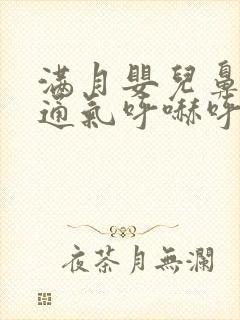 滿月嬰兒鼻
通氣呼嚇呼
夜茶月無瀾